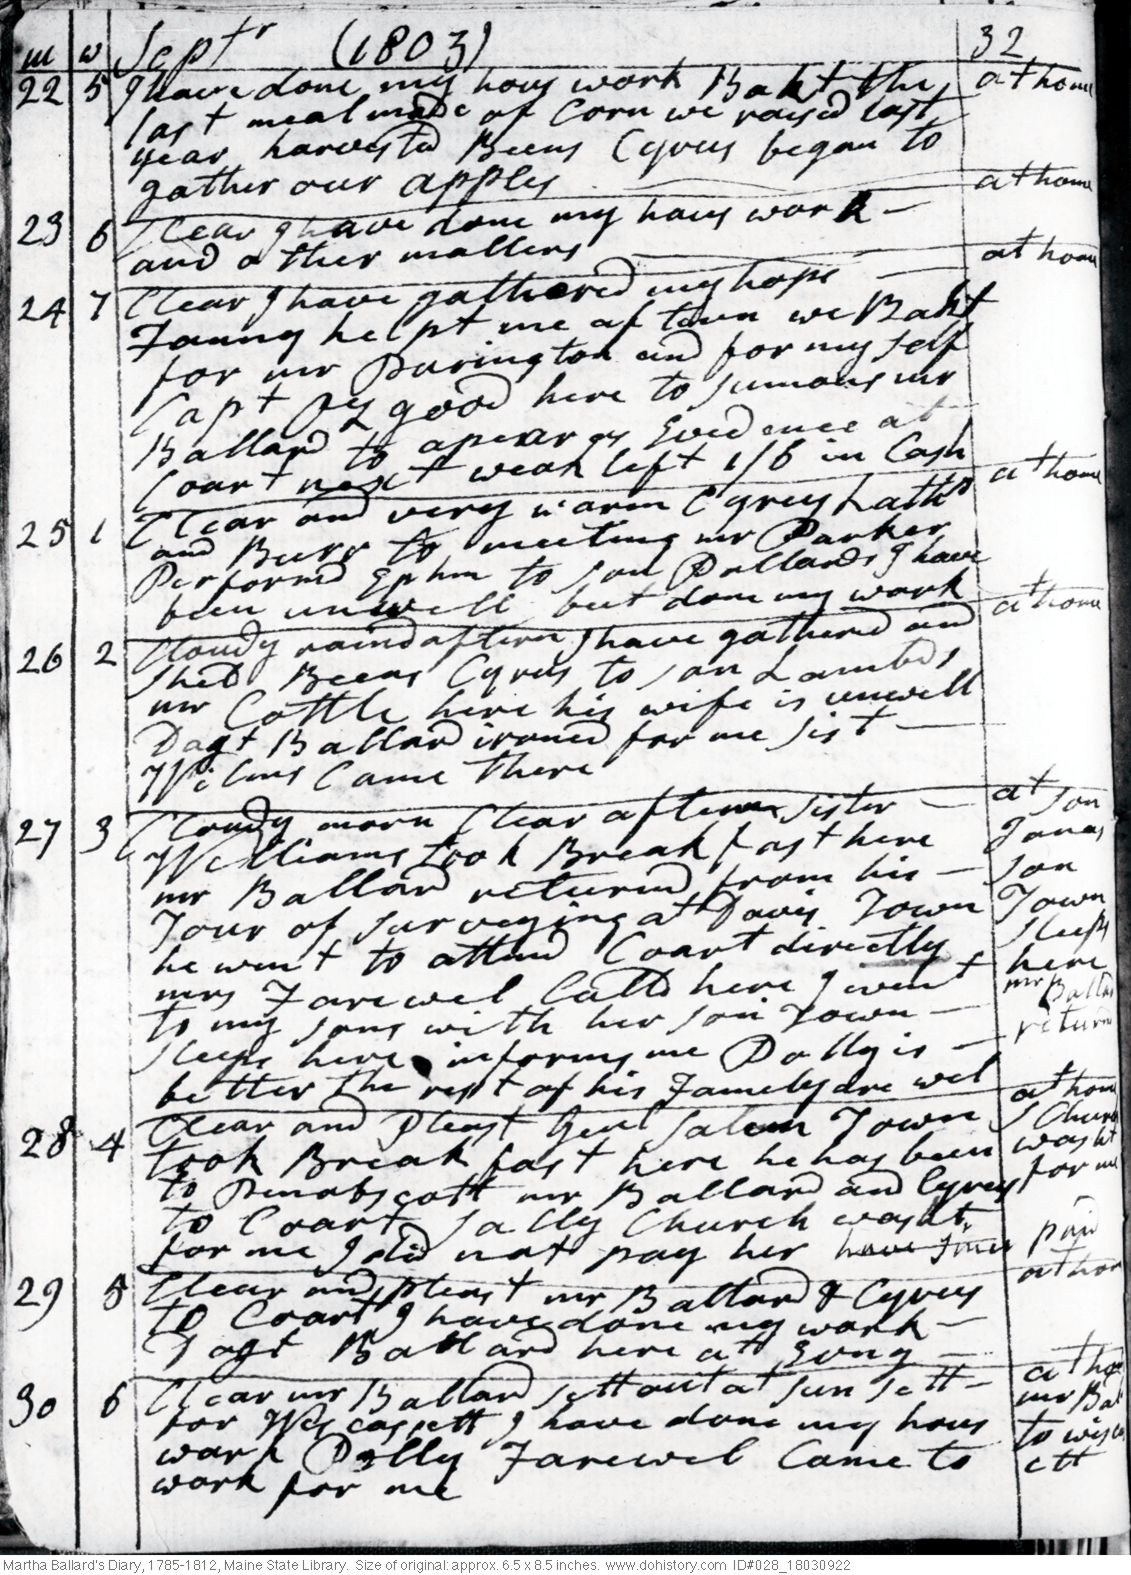 m w Septr (1803) 32
22 5 I have done my hous work Bakt the at home
last meal made of Corn we raised last
year harvested Beens Cyrus began to
gather our apples
23 6 Clear I have done my hous work - at home
and other matters
24 7 Clear I have gathered my hops at home
Fanny helpt me aftern we Bakt
for mr Purington and for my self
Capt good here to sumons mr
Ballard to apear as Evedence at
Coart next weak left 1/6 in Cash
25 1 Clear and very warm Cyrus Lathp at home
and Burr to meeting mr Parker
Performd Ephm to son Pollards I have
been unwell but done my work
26 2 Cloudy raind aftern I have gatherd and at home
shed Beens Cyrus to son Lambds
mr Cottle here his wife is unwell
Dagt Ballard ironed for me Sist
Wilms Came there
27 3 Cloudy morn Clear aftern Sister at son
Williams took Break fast here Jonas
mr Ballard returnd from his - son
Tour of surveying at Davis Town Town
he went to attend Coart directly sleeps
mrs Farewel Calld here I went here
to my sons with her son Town - mr Ballad
sleeps here informs me Dolly is - return
better the rest of his Famely are wel
28 4 Clear and Pleast Genl Salem Town at hom
took Break fast here he has been S Churh
to Penobscott mr Ballard and Cyrus washt
to Coart Sally Church washt for me
for me I did not pay her have since paid
29 5 Clear and pleast mr Ballard & Cyrus at hom
to Coart I have done my work -
Dagt Ballard here at Evng -
30 6 Clear mr Ballard sett out at sun sett - at hom
for Wiscassett I have done my hous mr Bal
work Polly Farewel Came to to wisc
work for me ett
Martha Ballard's Diary, 1785-1812, Maine State Library. Size of original: approx. 6.5 x 8.5 inches. www.dohistory.com ID#028_18030922